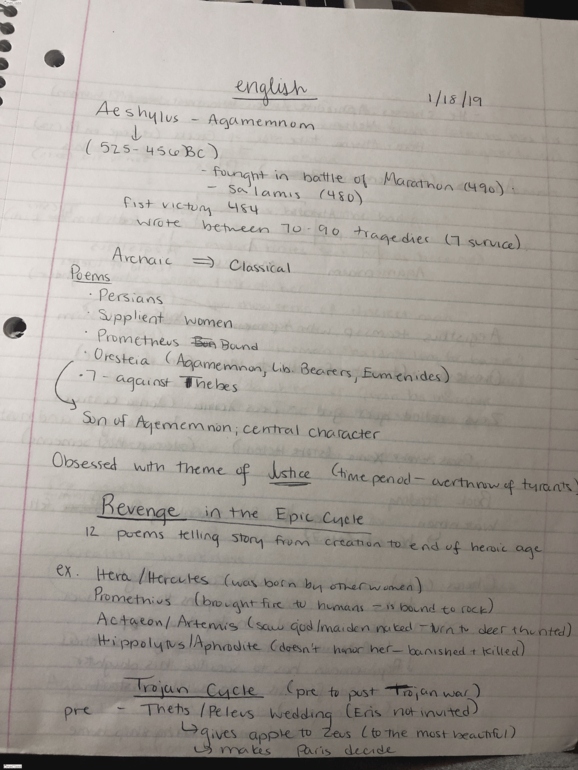 english 1/18/19
Aeshylus - Agamemnom
↓
(525-456BC)
- fought in battle of Marathon (490).
- Salamis (480)
fist victory 484
wrote between 70-90 tragedies (7 survice)
Archaic ⇒ Classical
Poems
· Persians
· Supplient women
· Prometheus Band
· Oresteia (Agamemnon, Lib. Bearers, Eumenides)
· 7 - against Thebes
Son of Agememnon; central character
Obsessed with theme of Justice (time period - overthrow of tyrants)
Revenge in the Epic Cycle
12 poems telling story from creation to end of heroic age
ex. Hera/Hercules (was born by other women)
Promethius (brought fire to humans - is bound to rock)
Actaeon/Artemis (saw god/maiden naked - turn to deer & hunted)
Hippolytus/Aphrodite (doesn't honor her - banished + killed)
Trojan Cycle (pre to post Trojan war)
pre - Thetis/Peleus Wedding (Eris not invited)
↳ gives apple to Zeus (to the most beautiful)
↳ makes Paris decide